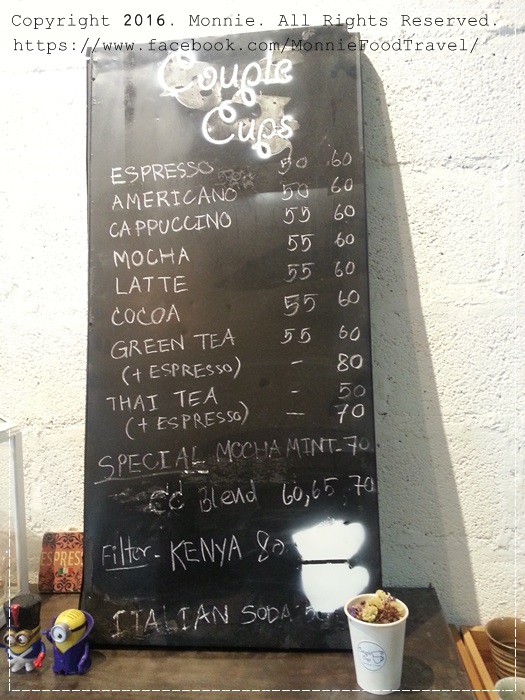 Copyright 2016. Monnie. All Rights Reserved.
https://www.facebook.com/MonnieFoodTravel/
Couple
Cups
ESPRESSO 50 60
AMERICANO 50 60
CAPPUCCINO 55 60
MOCHA 55 60
LATTE 55 60
COCOA 55 60
GREEN TEA 55 60
(+ ESPRESSO) - 80
THAI TEA - 50
(+ ESPRESSO) - 70
SPECIAL MOCHA MINT-70
Blend 60,65,70
Filter - KENYA 80
ITALIAN SODA
ESPRESS